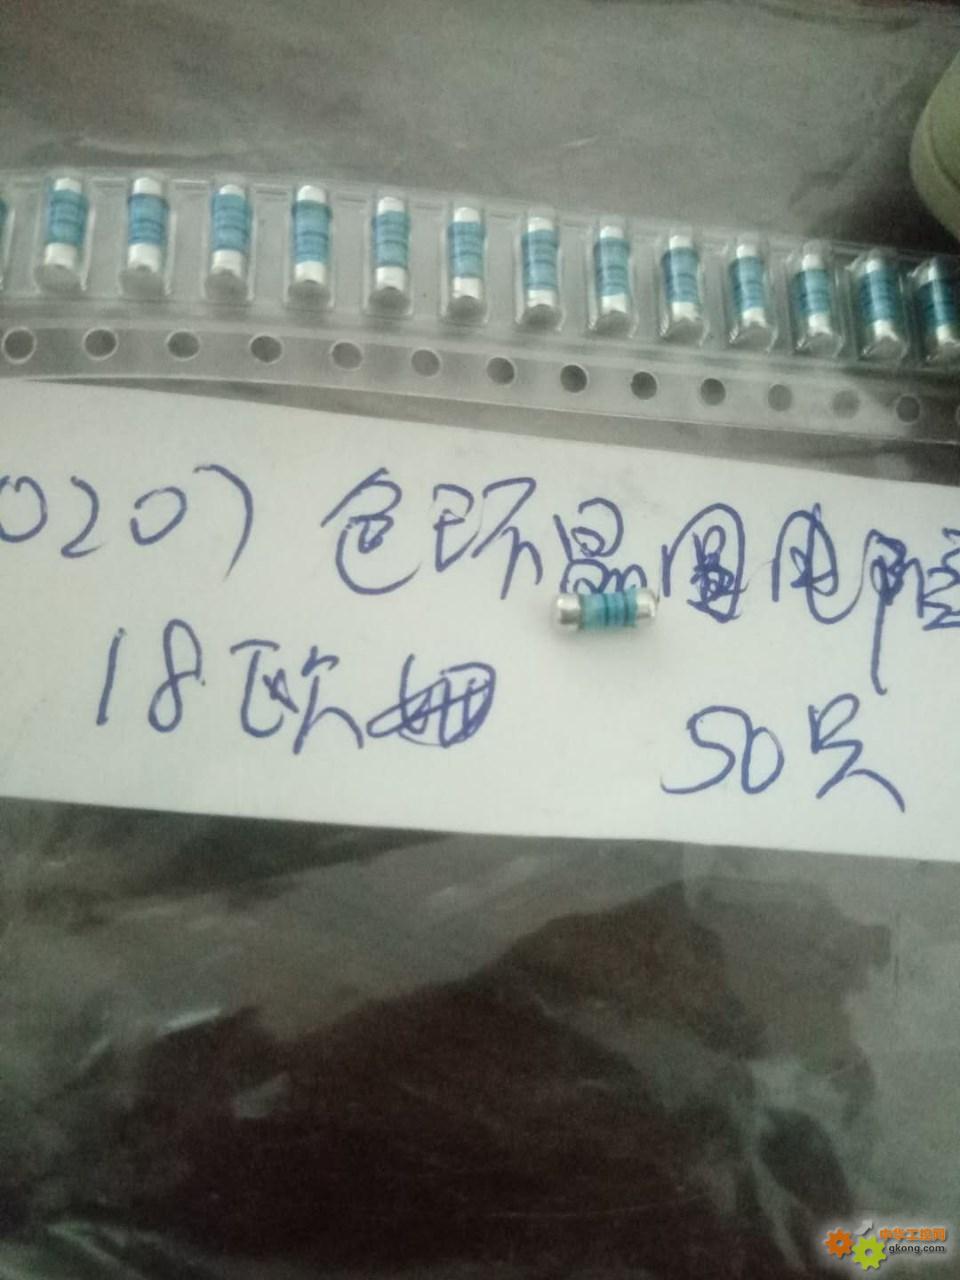 0207 色环晶圆电阻
18欧姆
50只
中华工控网
gkong.com